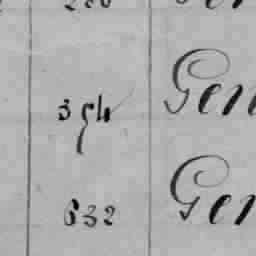 354 Gen
632 Gen